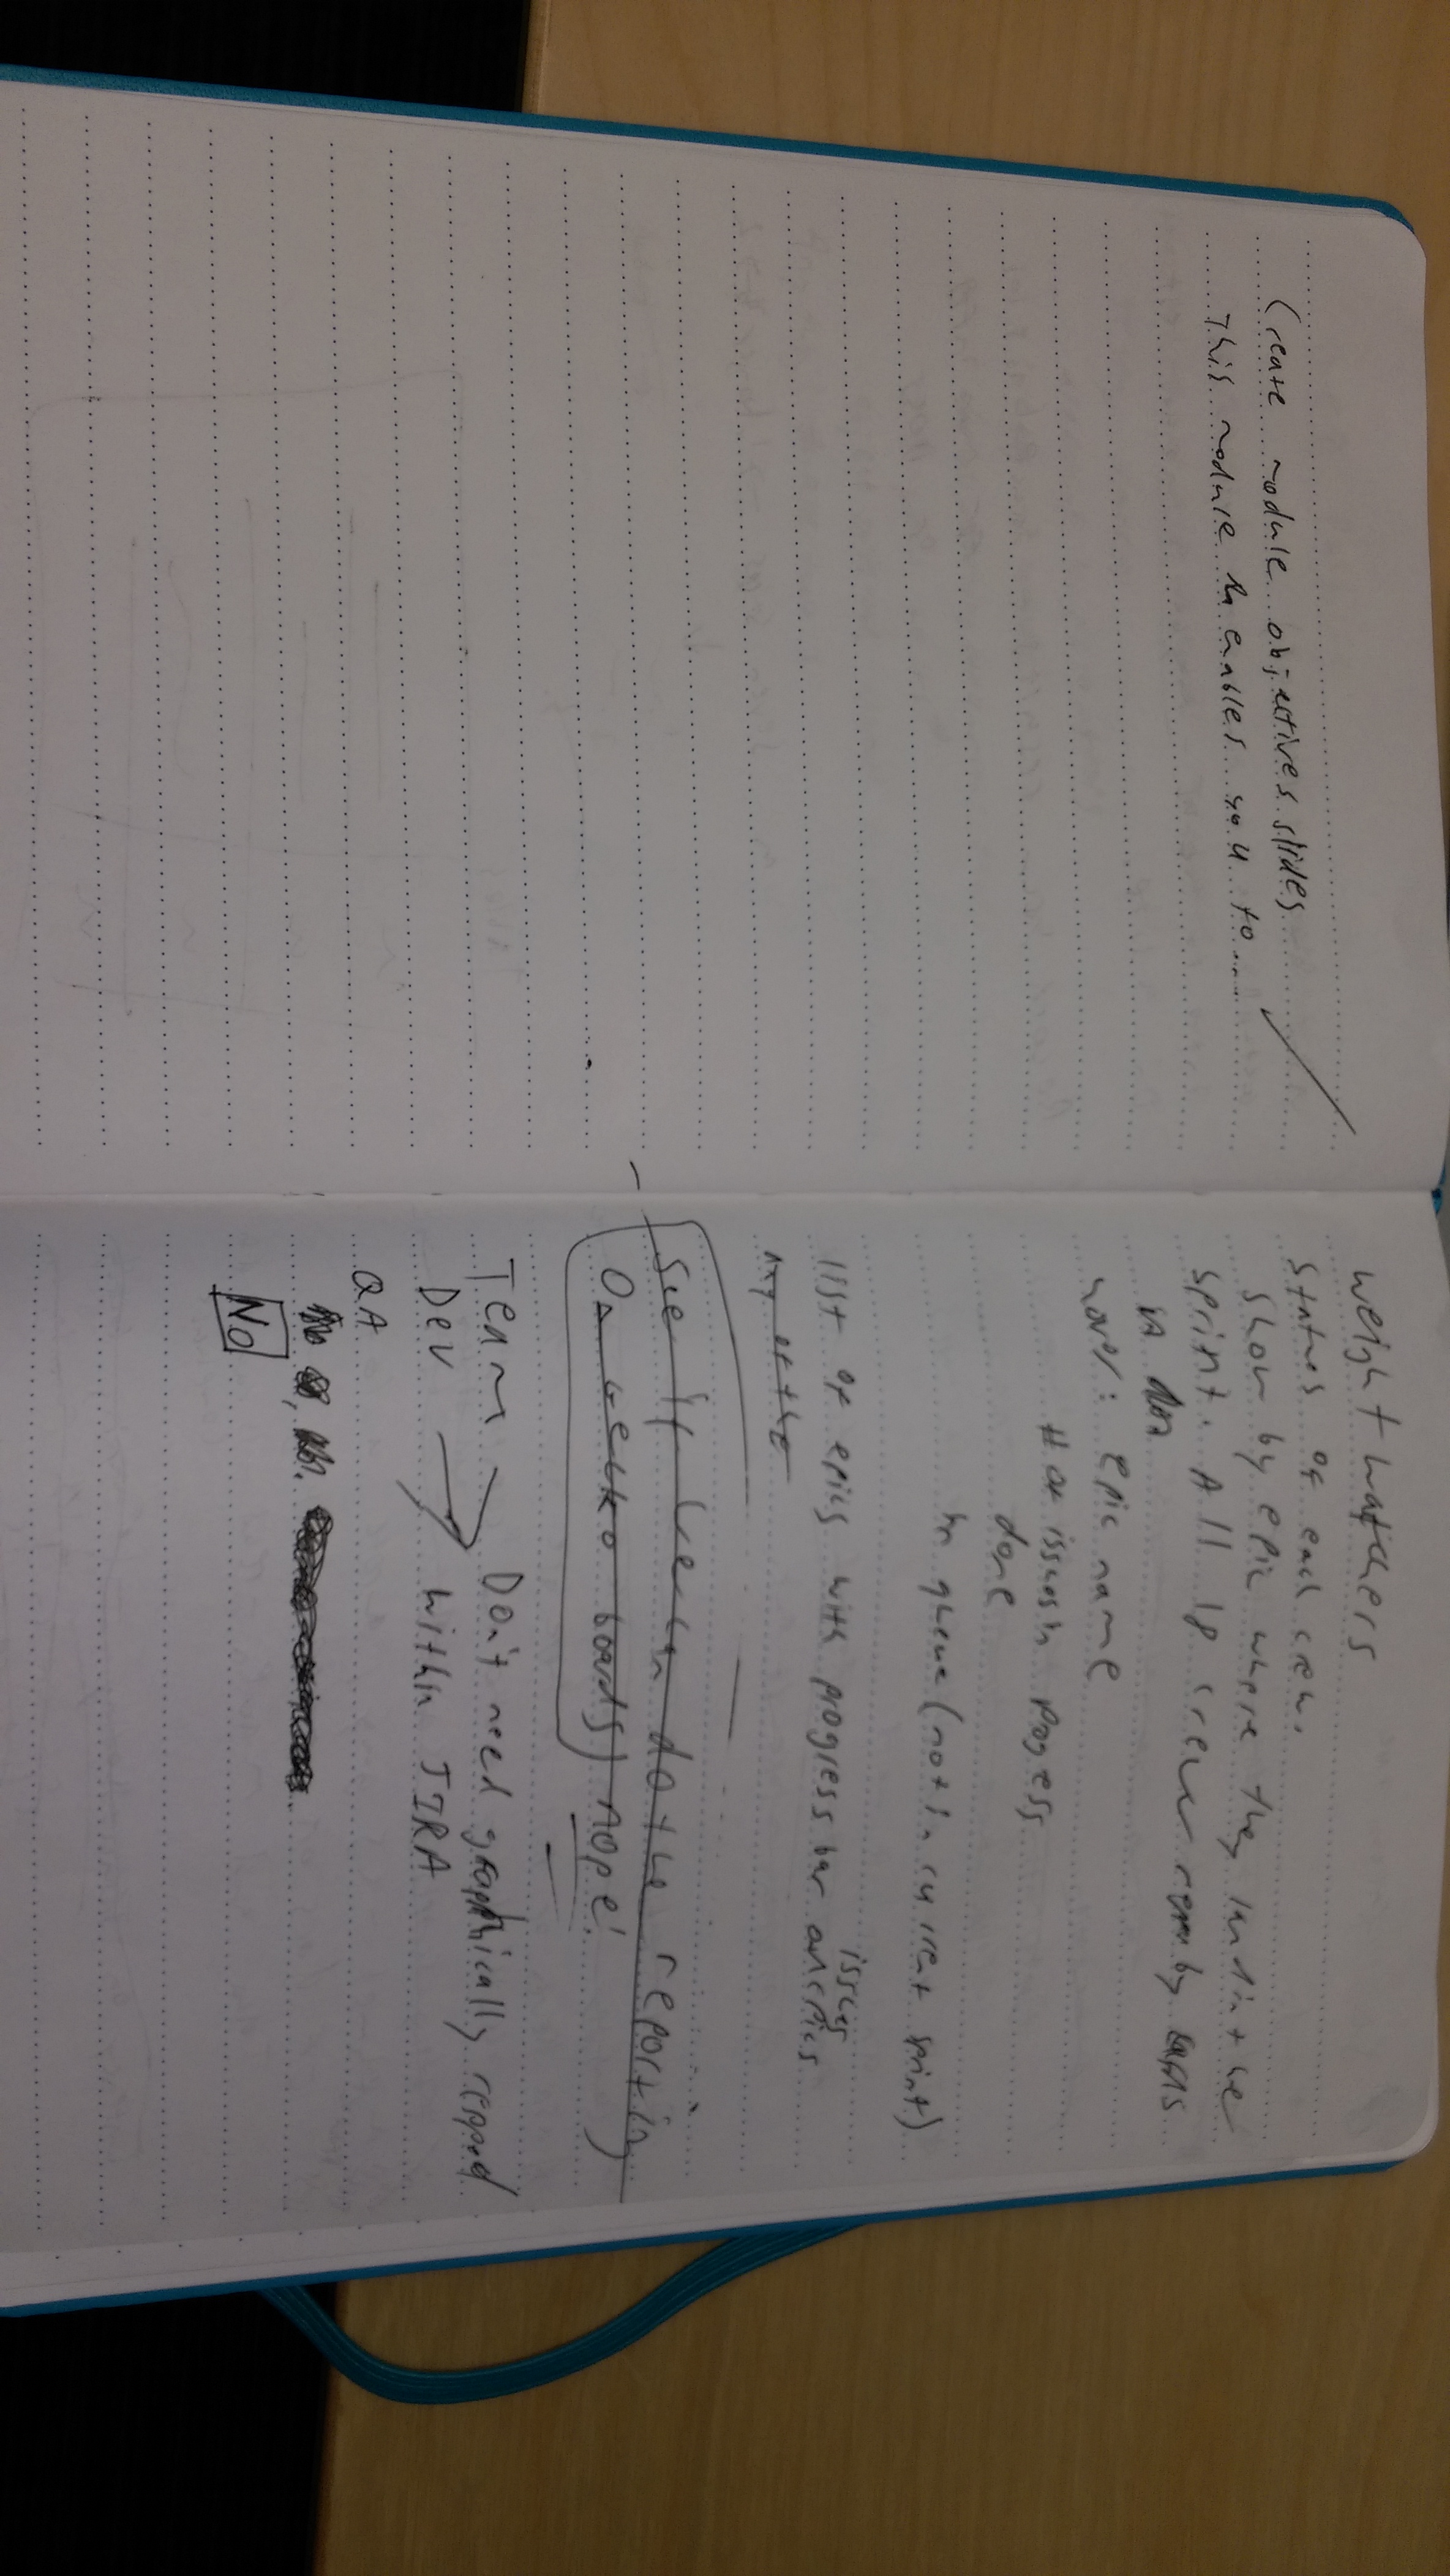 Create module objectives slides
This module enables you to....
Weight watchers
Status of each crew.
Show by epic where they in the
sprint. All 18 crew by
hover: epic name
# of issues in progress
done
in queue (not in current sprint)
issues
list of epics with progress bar
See if we can do the reporting
On boards) nope!
Team → Don't need graphically
Dev → within JIRA
QA
No